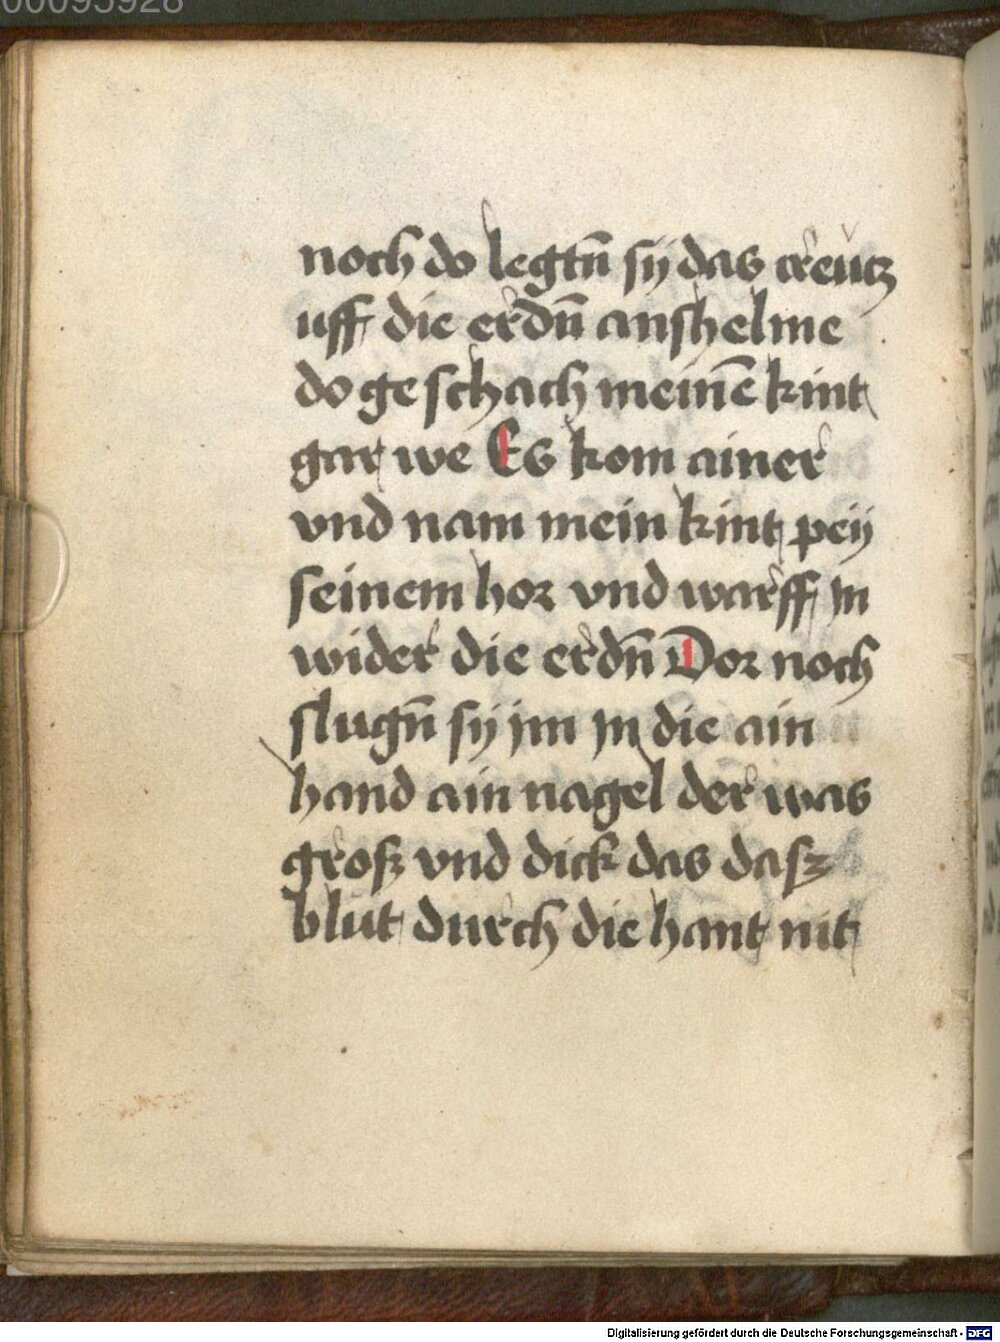 00095928
noch do legtn̄ sij das creutz
uff die erdn̄ anshelme
do geschach meinē kint
gar we Es kom ainer
vnd nam mein kint peij
seinem hor vnd warff in
wider die erdn̄ Dor noch
slugn̄ sij jm jn die ain
hand ain nagel der was
groß vnd dick das dasz
blut durch die hant nit
Digitalisierung gefördert durch die Deutsche Forschungsgemeinschaft - DFG